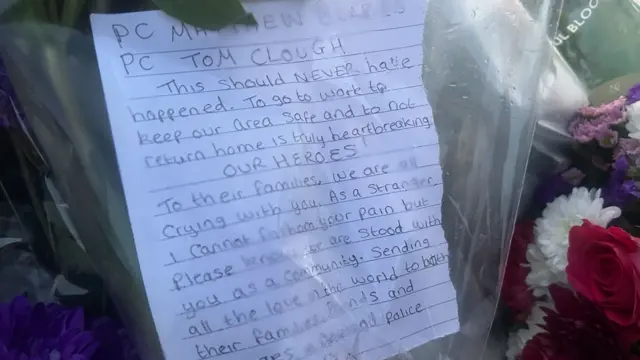 PC MATTHEW
PC TOM CLOUGH
This should NEVER have
happened. To go to work to
keep our area safe and to not
return home is truly heartbreaking.
OUR HEROES!
To their families, we are all
crying with you. As a stranger
I cannot fathom your pain but
Please are stood with
you as a community. Sending
all the love in the world to both
their families, friends and
all Police
BLOC